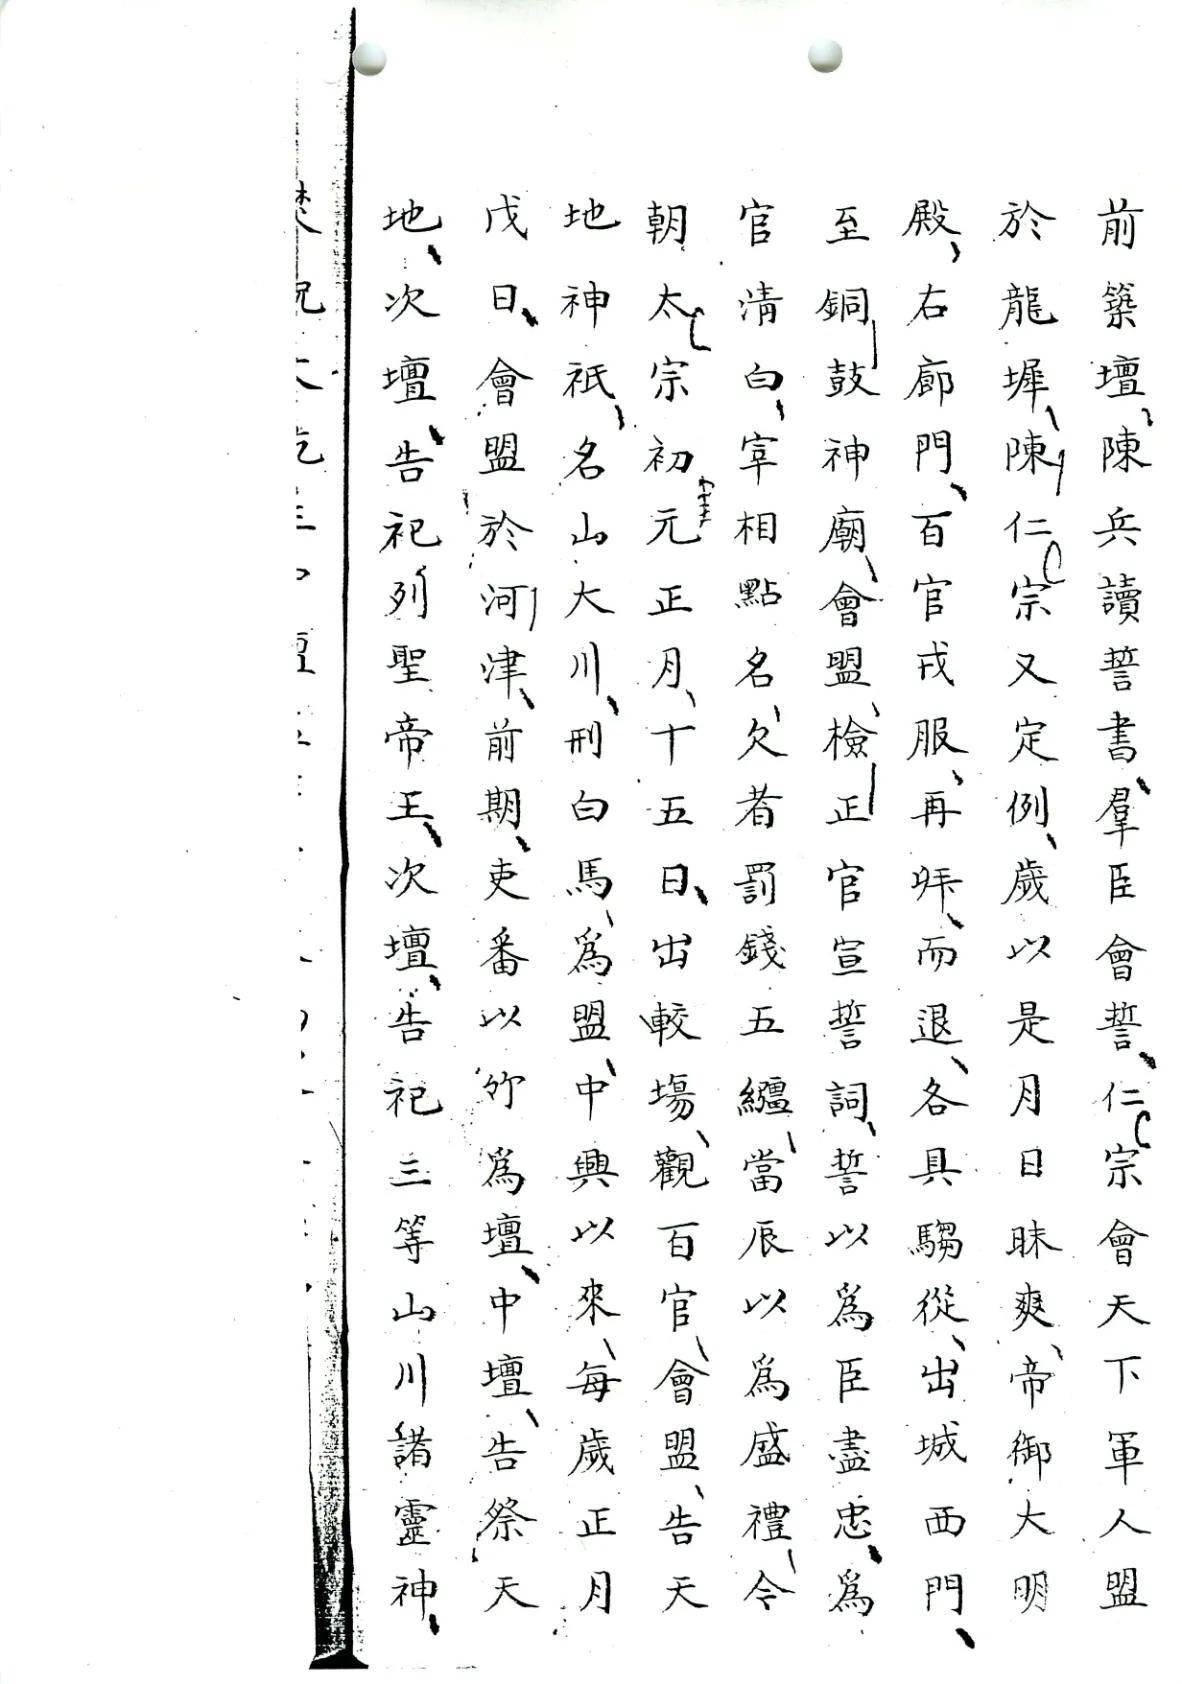 前築壇陳兵讀誓書羣臣會誓仁宗會天下軍人盟
於龍墀陳仁宗又定例歲以是月日昧爽帝御大明
殿右廊門百官戎服再拜而退各具騶從出城西門
至銅鼓神廟會盟檢正官宣誓詞誓以爲臣盡忠爲
官淸白宰相點名欠者罰錢五繦當辰以爲盛禮今
朝太宗初元正月十五日出較場觀百官會盟告天
地神祇名山大川刑白馬爲盟中興以來每歲正月
戊日會盟於河津前期吏番以竹爲壇中壇告祭天
地次壇告祀列聖帝王次壇告祀三等山川諸靈神